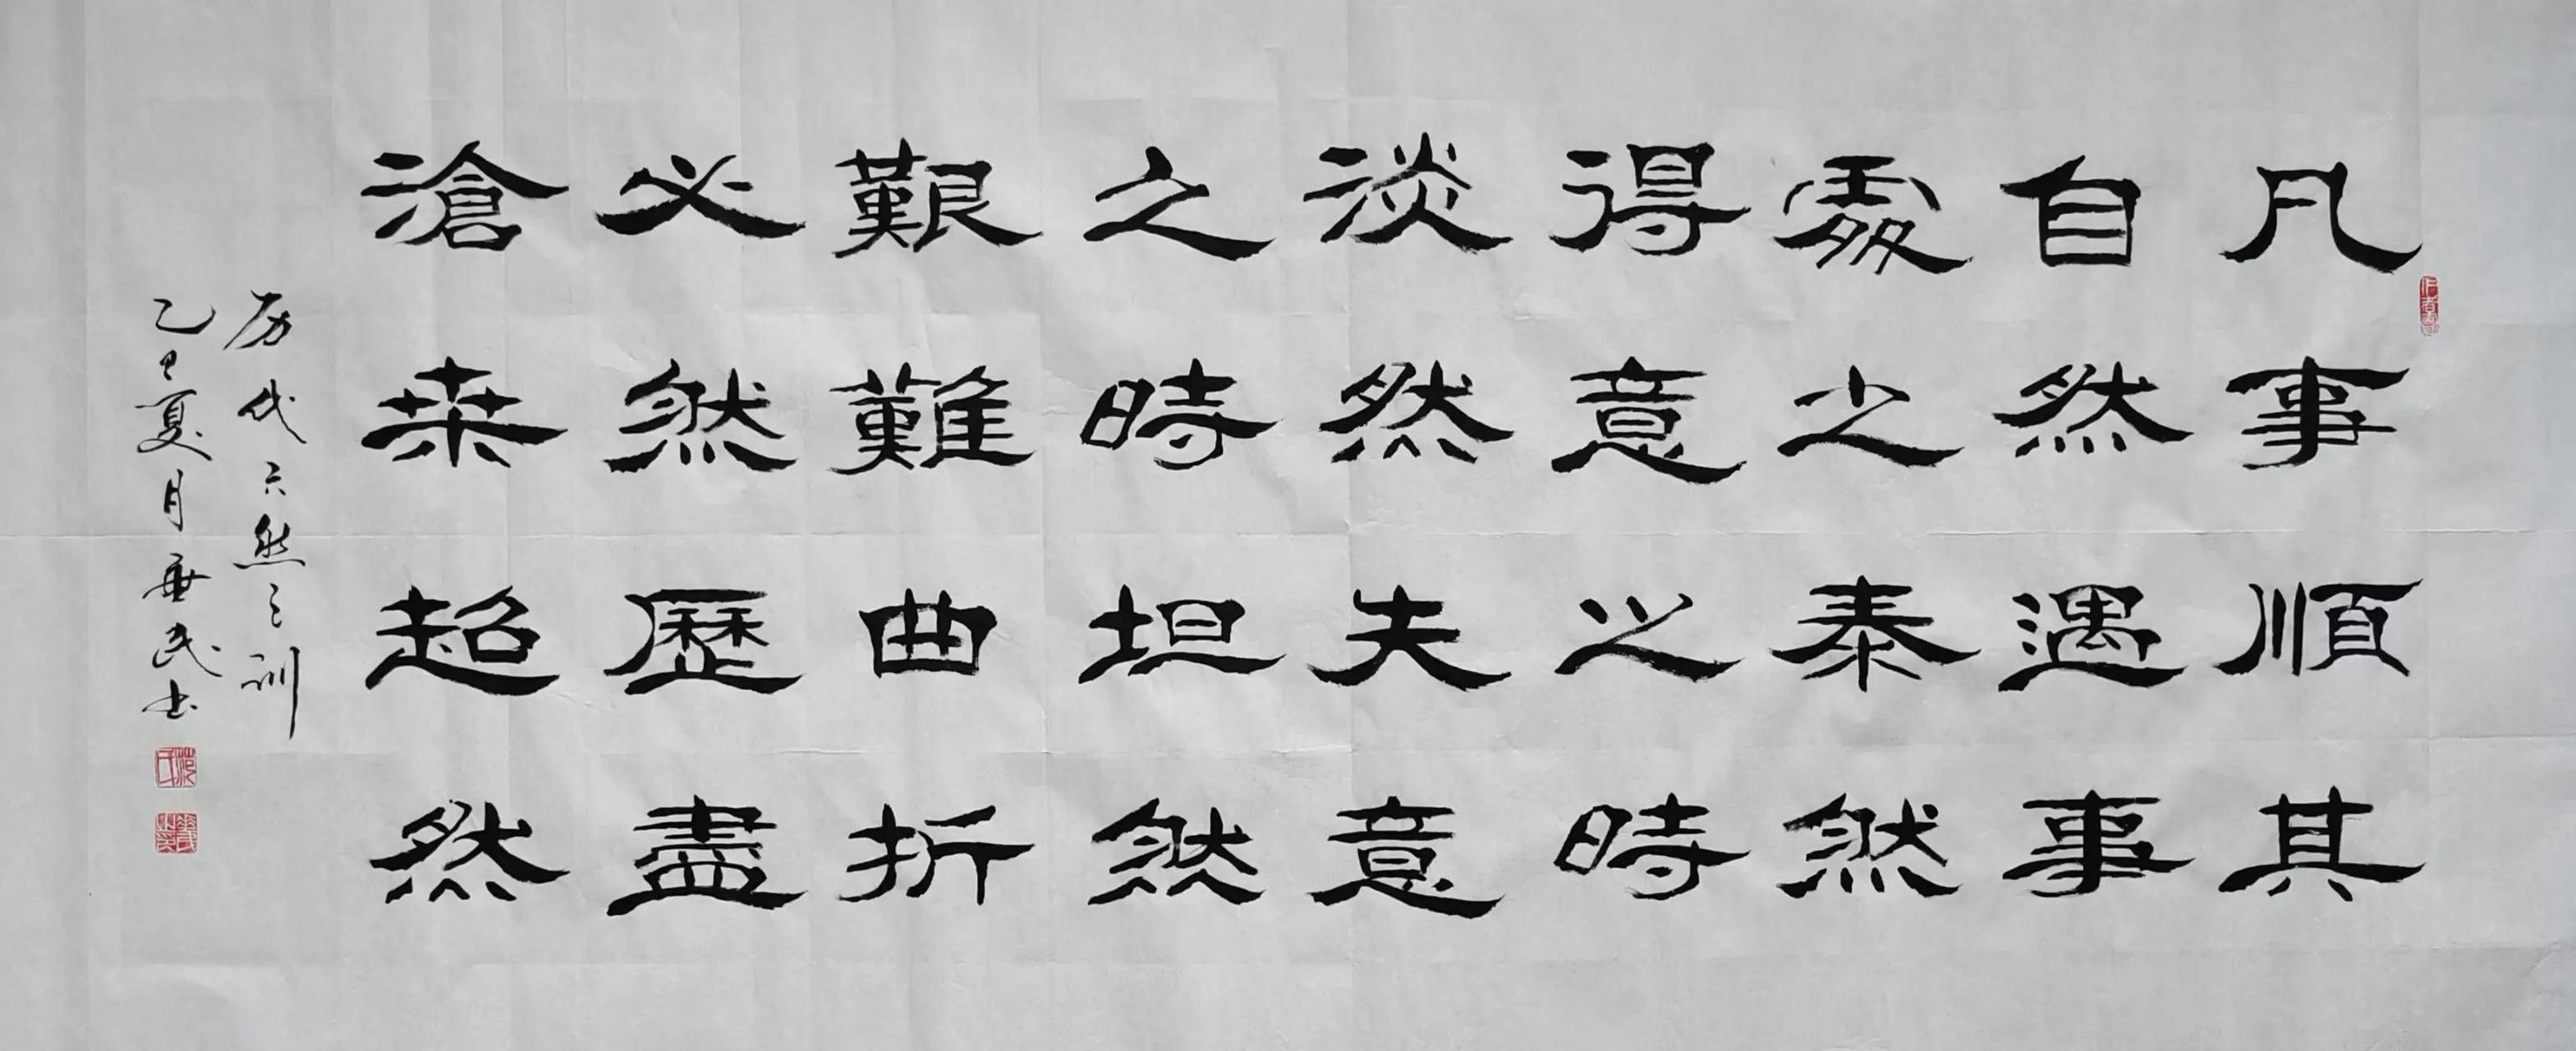 凡事順其
自然遇事
處之泰然
得意之時
淡然失意
之時坦然
艱難曲折
必然歷盡
滄桒超然
历代六然之训
乙巳夏月華民书